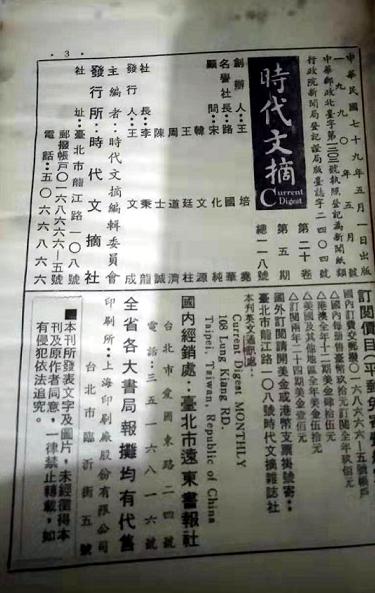 ．3．
中華民國七十九年五月 日出版
一九九〇年五月號
中華郵政北臺字第三二〇三號執照登記為新聞紙類
行政院新聞局登記證局版臺誌字二四〇四號
時代文摘
Current
Digest
第二十卷
第五期
總一一八號
創辦人：王培堯
名譽社長：路國華
顧問：宋化純
韓文源
王廷柱
周道濟
陳士誠
社長：李秉龍
發行人：王文成
主編者：時代文摘編輯委員會
發行所：時代文摘社
社址：臺北市龍江路一〇八號
郵撥帳戶〇一六八六六六—五號
電話：五〇六六八六六
訂閱價目(平郵免
國內訂費
國內每冊
△港澳全年十二期美金肆拾伍元
△美國及其他地區全年美金伍拾元
△訂閱兩年二十四期美金壹佰元
國外訂閱請開美金或港幣支票掛號寄：
臺北市龍江路一〇八號時代文摘雜誌社
本刊英文通訊處：
Current Digest MONTHLY
108 Lung Kiang RD.
Taipei, Taiwan, Republic of China
國內經銷處：臺北市遠東書報社
台北市愛國東路二四號
電話：三五一六八一六
全省各大書局報攤均有代售
印刷所：上海印刷廠股份有限公司
台北市臨沂街五號
■本刊所發表文字及圖片，未經徵得本
刊及原作者同意，一律禁止轉載，如
有侵犯依法追究。